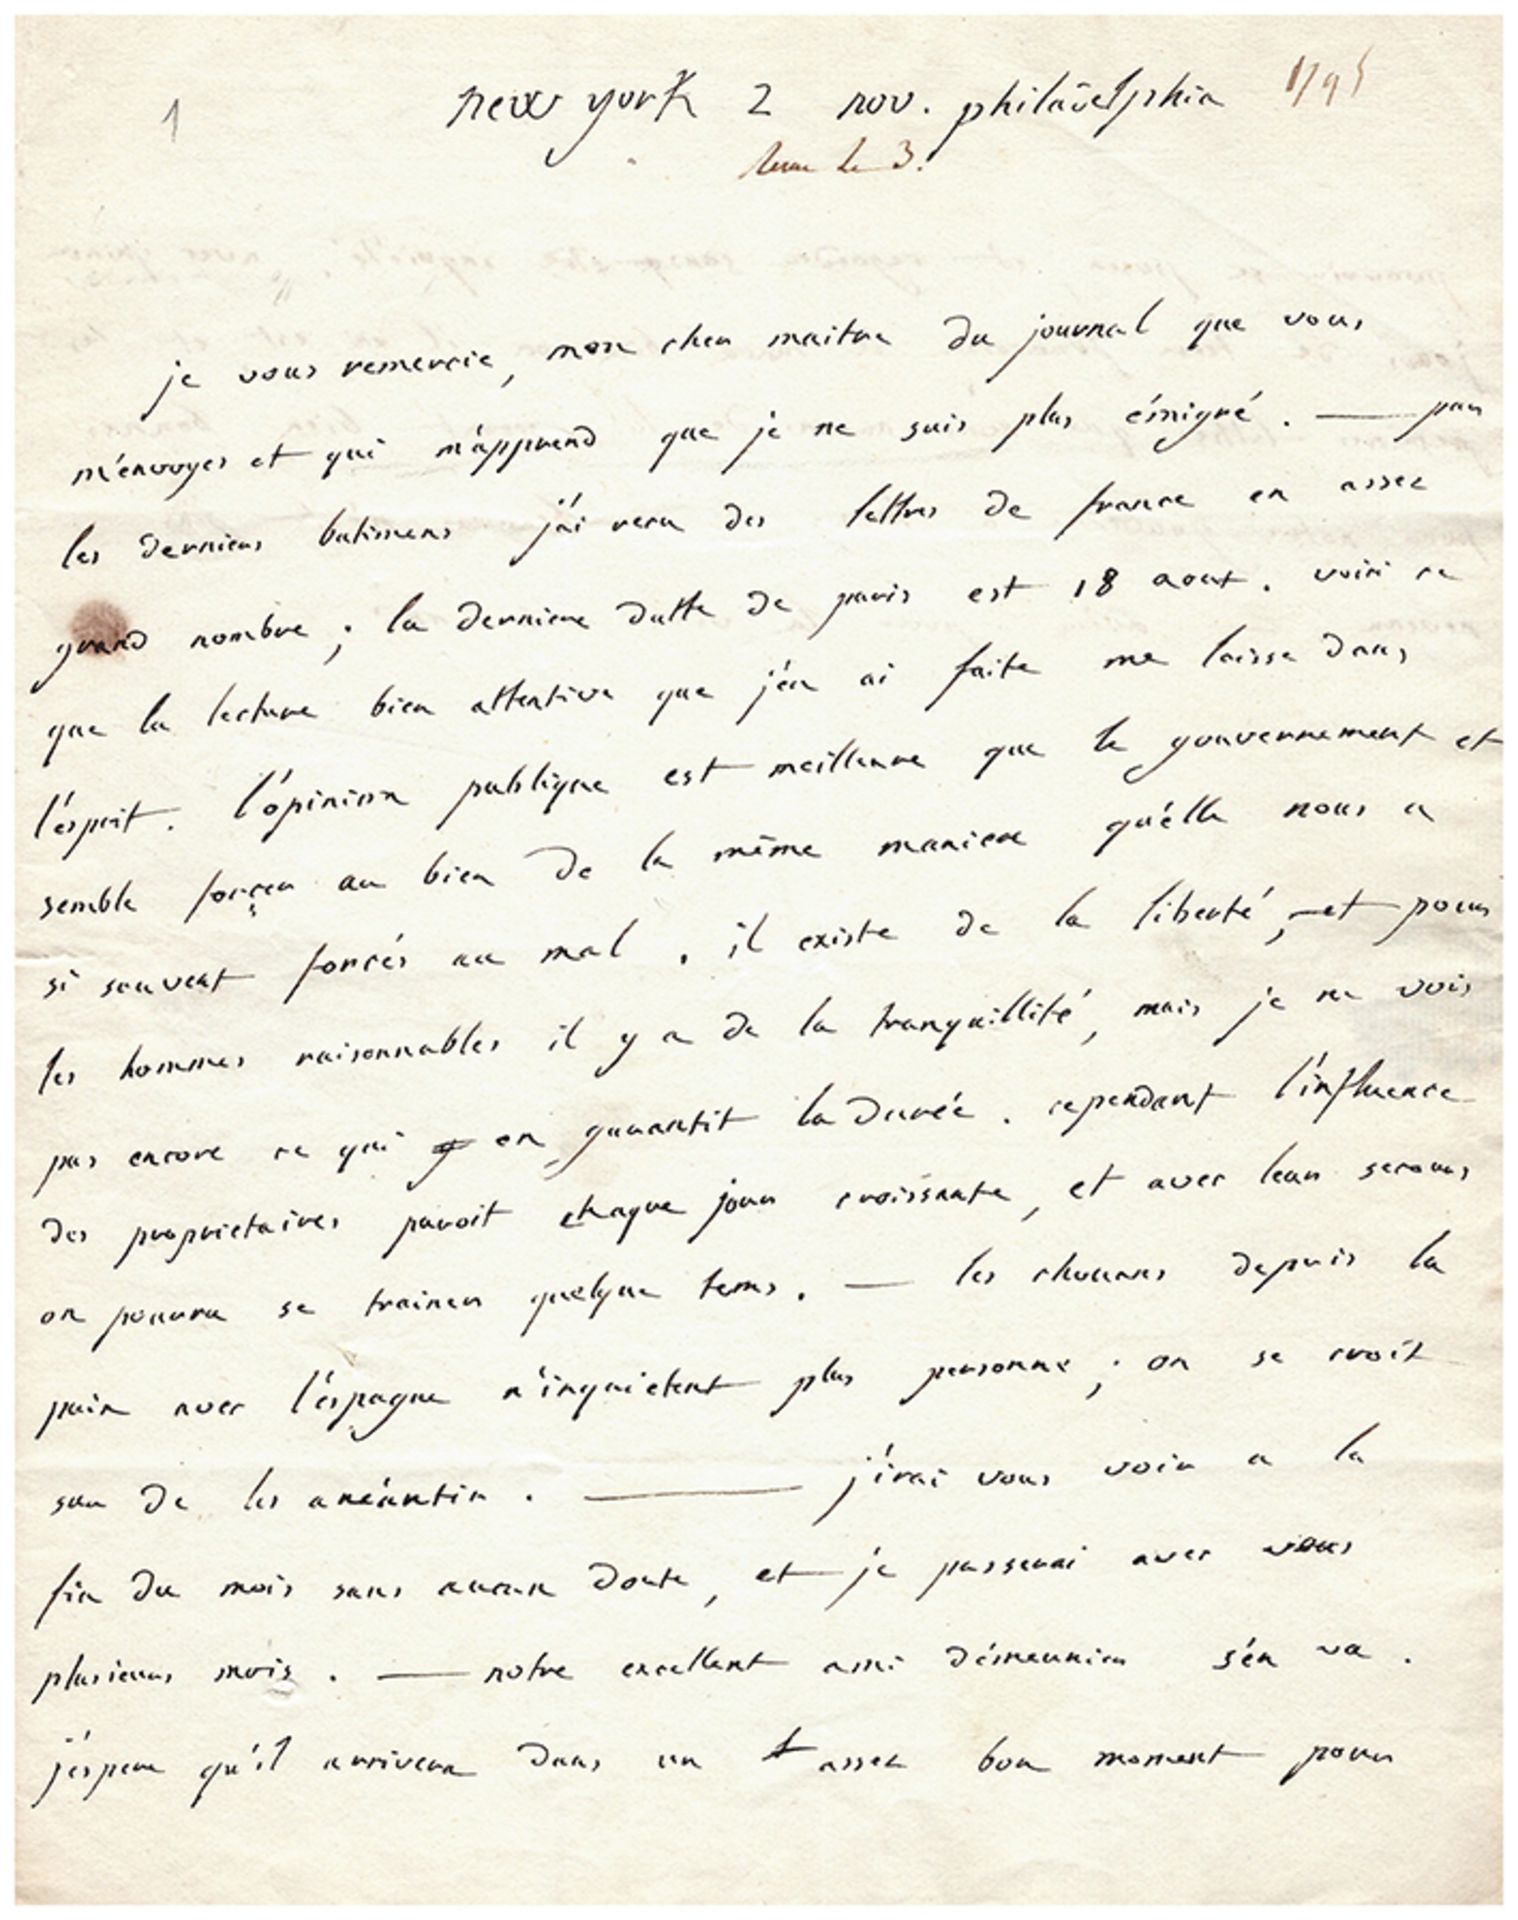 1
new york 2 nov. philadelphia 1795
recue le 3.
je vous remercie, mon cher maitre du journal que vous
m'envoyes et qui m'apprend que je ne suis plus émigré. — par
les derniers batimens j'ai recu des lettres de france en assez
grand nombre ; la derniere datte de paris est 18 aout. voici ce
que la lecture bien attentive que j'en ai faite me laisse dans
l'esprit. l'opinion publique est meilleure que le gouvernement et
semble forcer au bien de la même maniere qu'elle nous a
si souvent forcés au mal. il existe de la liberté, et pour
les hommes raisonnables il y a de la tranquillité, mais je ne vois
pas encore ce qui en garantit la durée. cependant l'influence
des proprietaires paroit chaque jour croissante, et avec leur secours
on pourra se trainer quelque tems. — les chouans depuis la
paix avec l'espagne n'inquietent plus personne ; on se croit
sur de les anéantir. — j'irai vous voir a la
fin du mois sans aucun doute, et je passerai avec vous
plusieurs mois. — notre excellent ami démeunier s'en va.
j'espere qu'il arrivera dans un assez bon moment pour